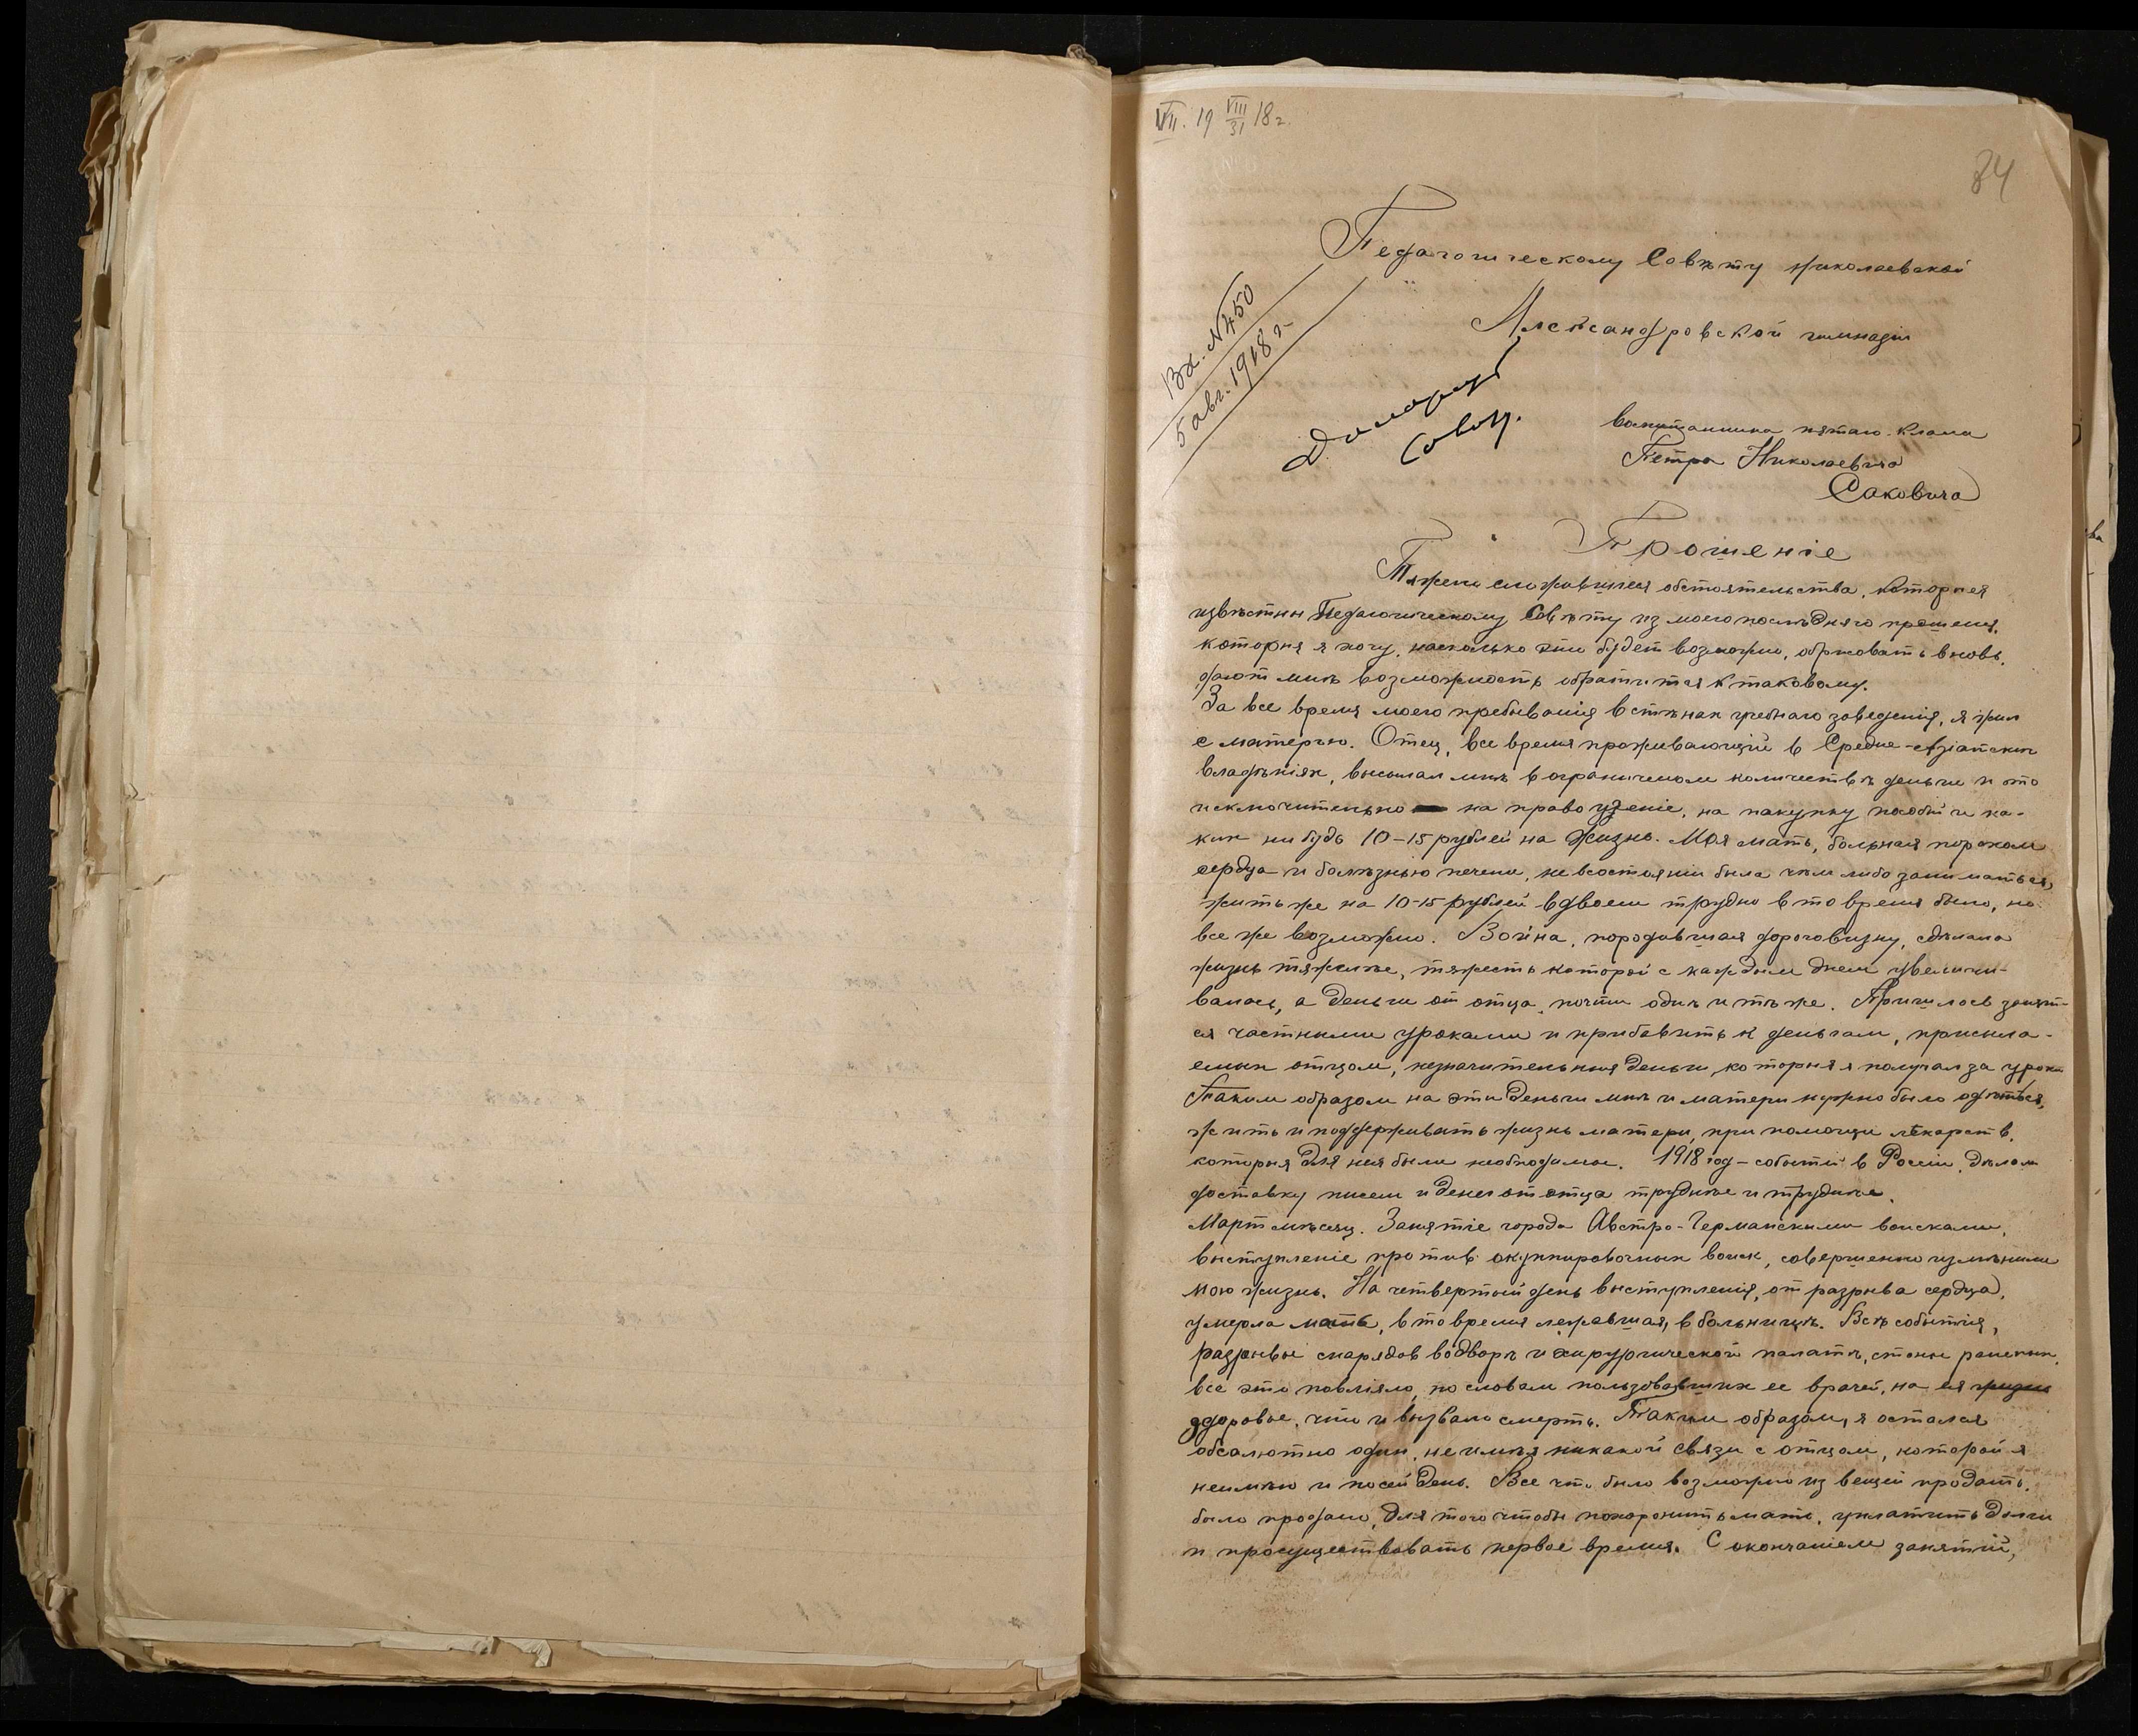 VII. 19 VIII/31 18 г.
84
Педагогическому Совѣту Николаевской
Александровской гимназіи
Вх. № 450
5 авг. 1918 г.
Сов.
воспитанника пятаго класса
Петра Николаевича
Саковича
Прошеніе
Тяжело сложившіеся обстоятельства, которыя
извѣстны Педагогическому Совѣту из моего послѣдняго прошенія,
которыя я хочу, насколько это будет возможно, обрисовать вновь,
дают мнѣ возможность обратится к таковому.
За все время моего пребыванія в стѣнах учебнаго заведенія, я жил
с матерью. Отец, все время проживающій в Средне-Азіатских
владѣніях, высылал мнѣ в ограниченом количествѣ деньги и это
исключительно на право ученіе, на пакупку пособій и ка-
ких нибудь 10-15 рублей на жизнь. Моя мать, больная пороком
сердца и болѣзнью печени, не всостояніи была чѣм либо заниматься,
жить же на 10-15 рублей вдвоем трудно в то время было, но
все же возможно. Война, породившая дороговизну, сдѣлала
жизнь тяжелѣе, тяжесть которой с каждым днем увеличи-
валась, а деньги от отца, почти однѣ и тѣ же. Пришлось занят-
ся частными уроками и прибавить к деньгам, присыла-
емых отцом, незначительныя деньги, которыя я получал за уроки
Таким образом на эти деньги мнѣ и матери нужно было одѣться,
жить и поддерживать жизнь матери, при помощи лѣкарств,
которыя для нея были необходимы. 1918 год - событій в Россіи, дѣлали
доставку писем и денег от отца труднѣе и труднѣе.
Март мѣсяц. Занятіе города Австро-Германскими войсками,
выступленіе против оккупировочных войск, совершенно измѣнили
мою жизнь. На четвертый день выступленія, от разрыва сердца,
умерла мать, в то время лежавшая, в больницѣ. Всѣ событія,
разрывы снарядов во дворѣ и хирургической палатѣ, стоны раненых,
все это повліяло, по словам пользовавших ее врачей, на ея жизнь
здоровье, что и вызвало смерть. Таким образом, я остался
обсалютно один, не имѣя никакой связи с отцом, которой я
неимѣю и посей день. Все что было возможно из вещей продать,
было продано, для того чтобы похоронить мать, уплатить долги
и просуществовать первое время. С окончаніем занятій,